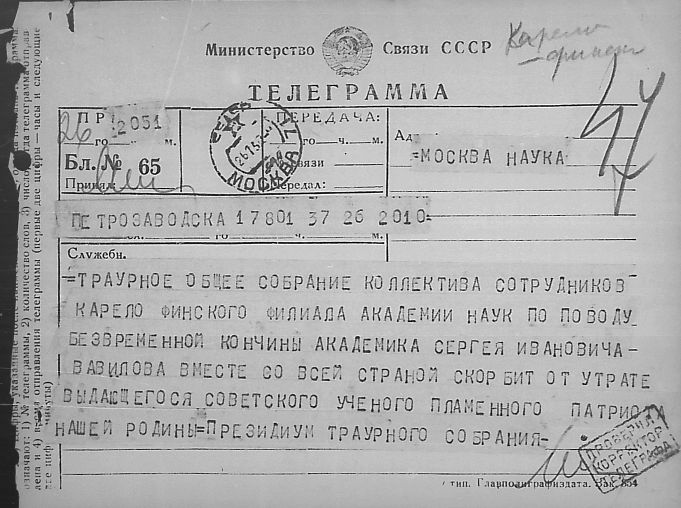 Министерство Связи СССР
Карело
ТЕЛЕГРАММА
ПР
26 2051
го ч. м.
Бл. № 65
Принял
МОСКВА
ПЕРЕДАЧА:
го ч. м.
связи
Передал:
=МОСКВА НАУКА
ПЕТРОЗАВОДСКА 17801 37 26 2010=
Служебн.
=ТРАУРНОЕ ОБЩЕЕ СОБРАНИЕ КОЛЛЕКТИВА СОТРУДНИКОВ
КАРЕЛО ФИНСКОГО ФИЛИАЛА АКАДЕМИИ НАУК ПО ПОВОДУ
БЕЗВРЕМЕННОЙ КОНЧИНЫ АКАДЕМИКА СЕРГЕЯ ИВАНОВИЧА-
ВАВИЛОВА ВМЕСТЕ СО ВСЕЙ СТРАНОЙ СКОРБИТ ОТ УТРАТЕ
ВЫДАЮЩЕГОСЯ СОВЕТСКОГО УЧЕНОГО ПЛАМЕННОГО ПАТРИО
НАШЕЙ РОДИНЫ=ПРЕЗИДИУМ ТРАУРНОГО СОБРАНИЯ-
ПРОВЕРИЛ
КОРРЕКТОР
ТЕЛЕГРАФА
тип. Главполиграфиздата. Зак. 834
означают: 1) № телеграммы, 2) количество слов, 3) число
и 4) время отправления телеграммы (первые две цифры — часы и следующие
две цифры минуты)